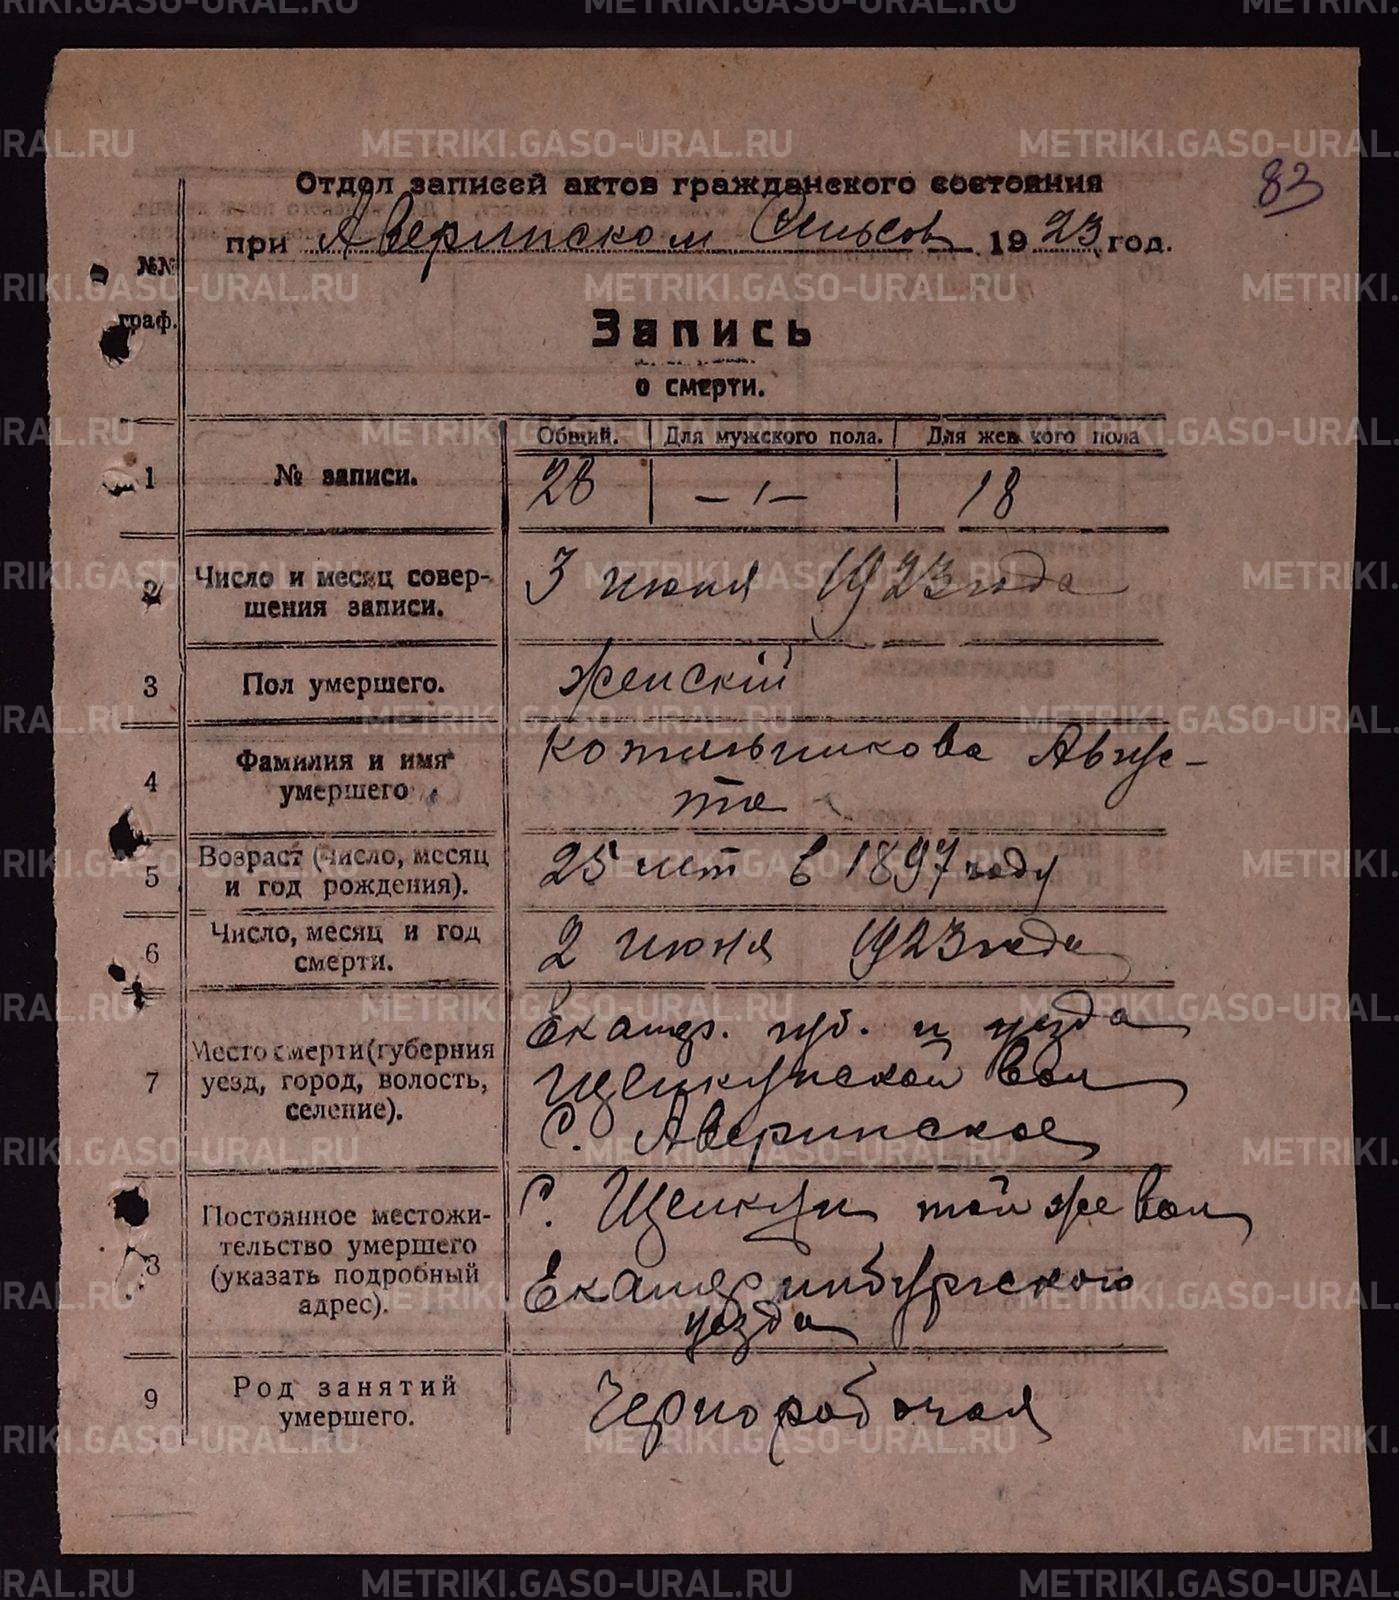 83
Отдел записей актов гражданского состояния
при Аверинском Сельсов 1923 год.
№№ граф.
Запись
о смерти.
Общий. Для мужского пола. Для женского пола
1 № записи. 28 — 18
2 Число и месяц совер-
шения записи.
3 июня 1923 года
3 Пол умершего. Женскій
4 Фамилия и имя
умершего
Котельникова Авгус-
та
5 Возраст (число, месяц
и год рождения).
25 лет в 1897 году
6 Число, месяц и год
смерти.
2 июня 1923 года
7 Место смерти (губерния
уезд, город, волость,
селение).
Екатер. губ. и уезда
Щелкунской вол
С. Аверинское
8 Постоянное местожи-
тельство умершего
(указать подробный
адрес).
С. Щелкун той же вол
Екатеринбургского
уезда
9 Род занятий
умершего.
Чернорабочая
METRIKI.GASO-URAL.RU